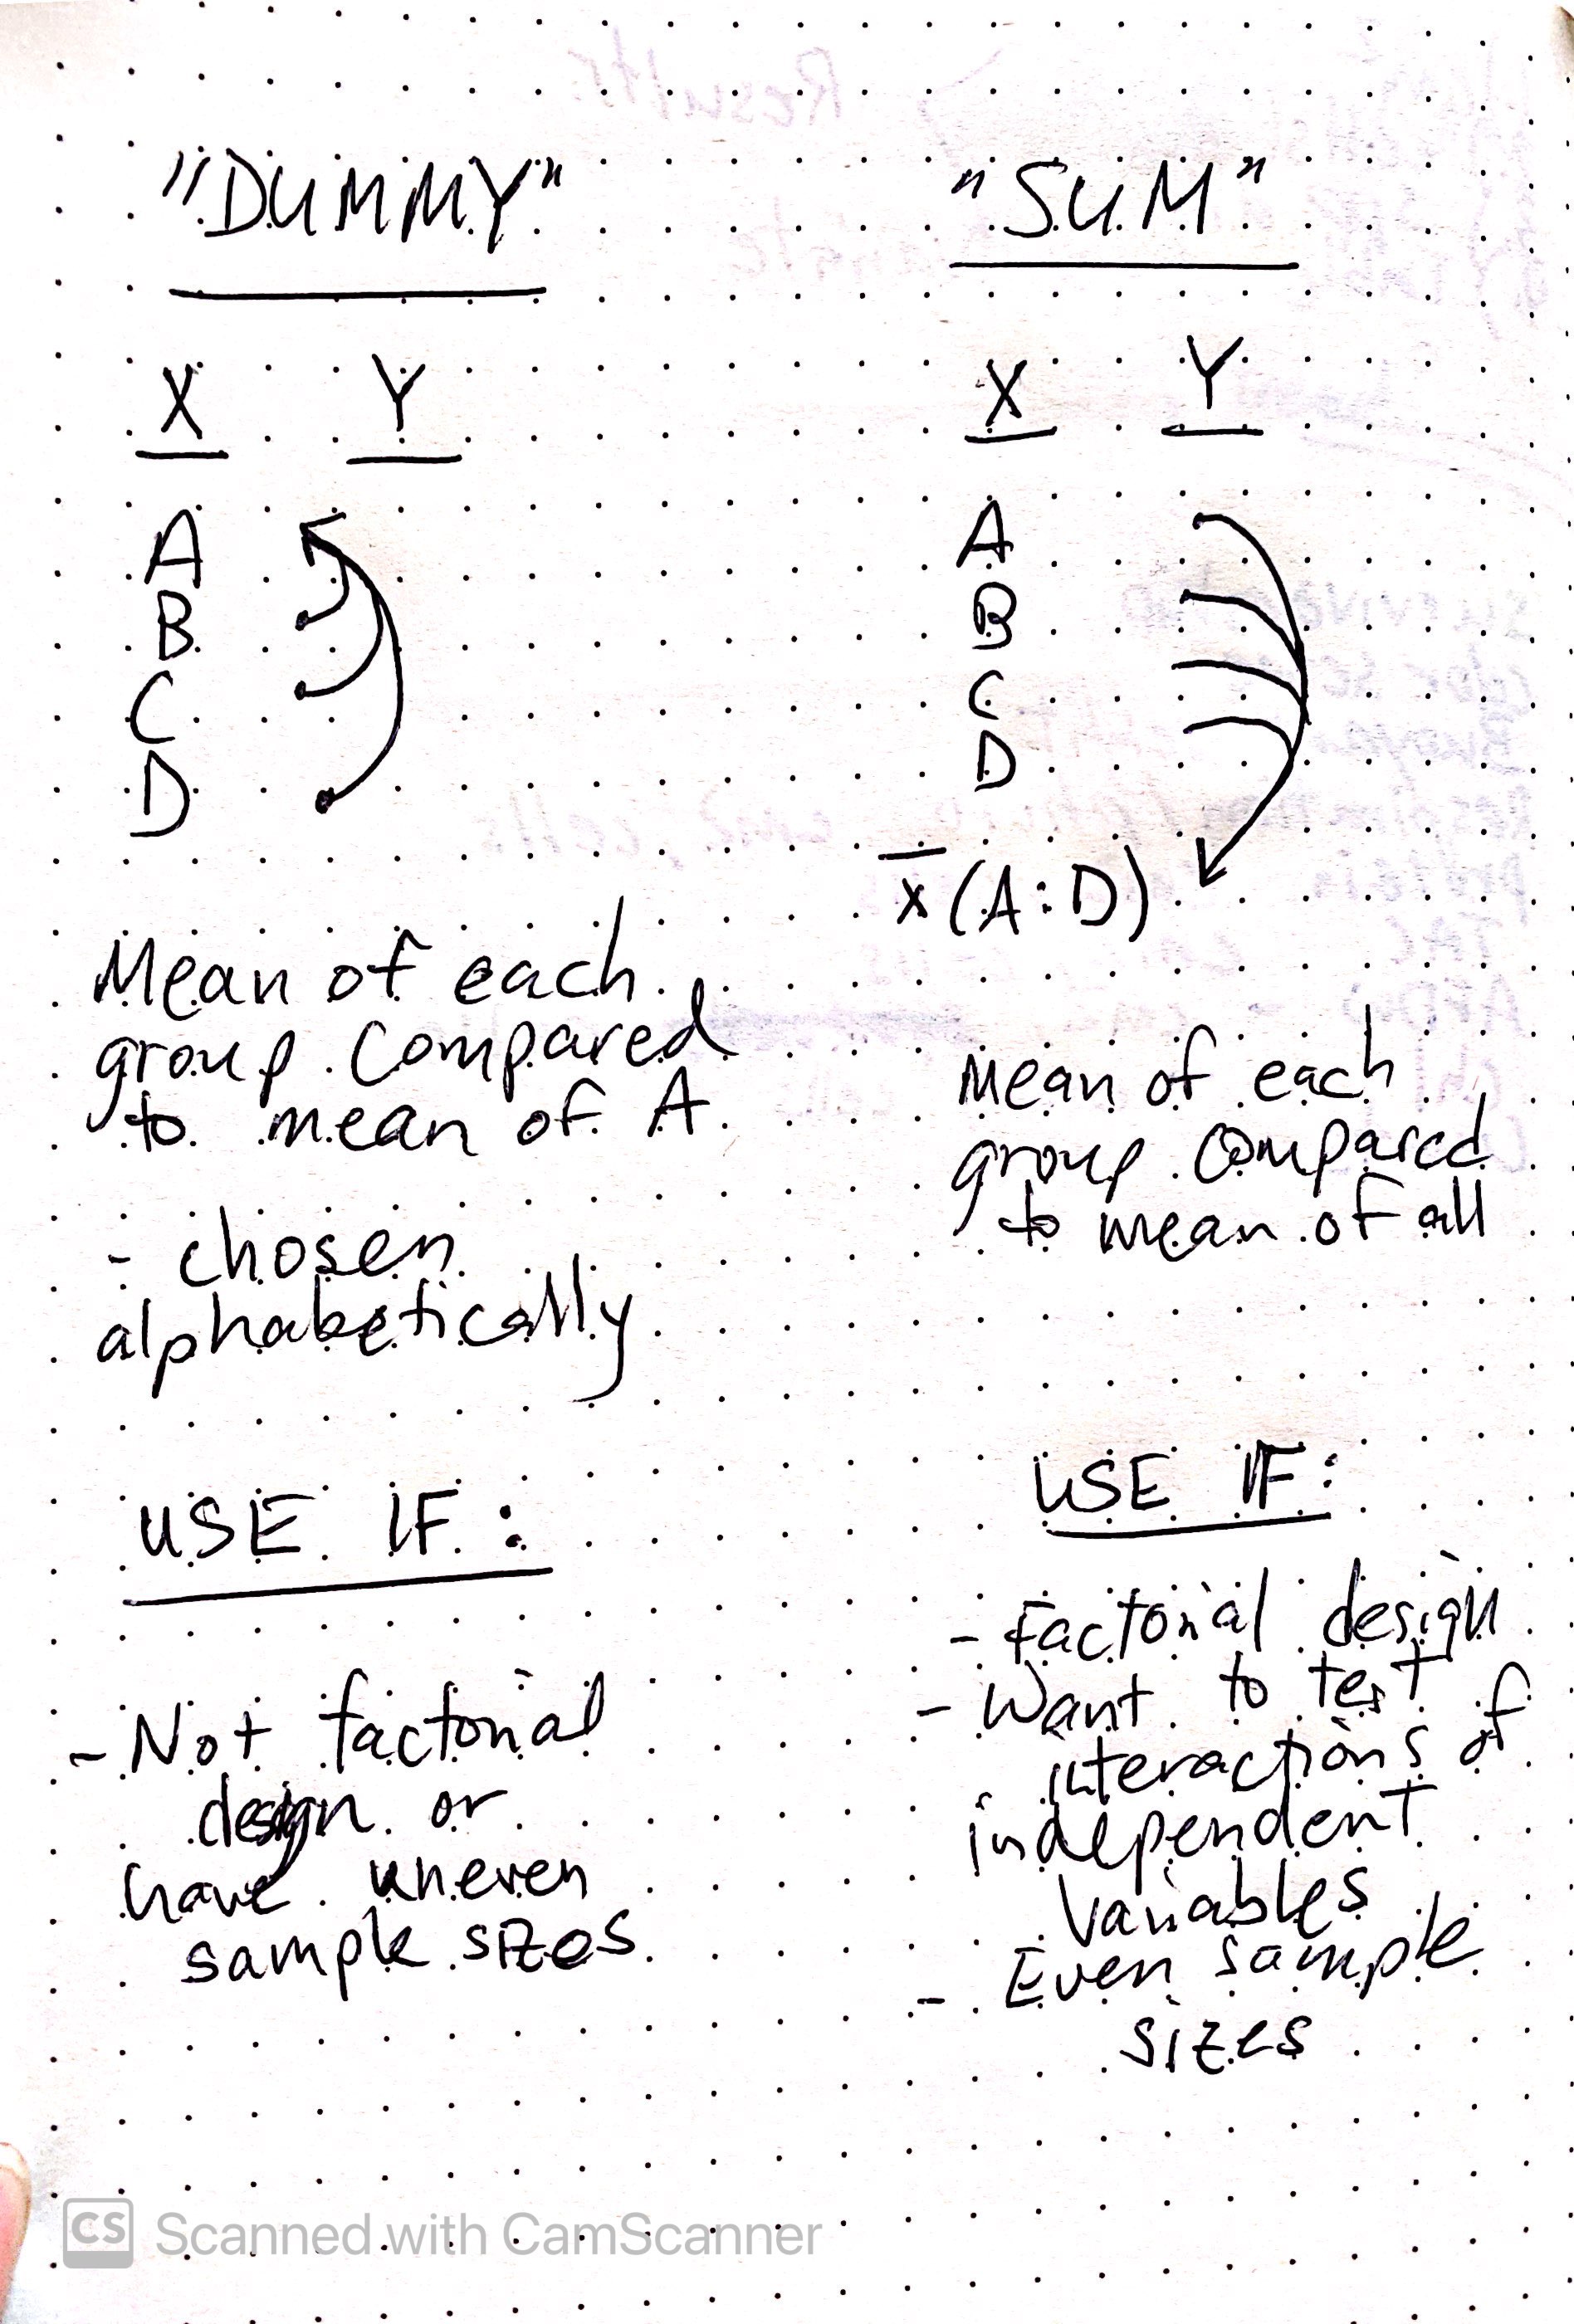 "DUMMY"
X Y
A
B
C
D
Mean of each
group compared
to mean of A
- chosen
alphabetically
USE IF:
- Not factorial
design or
have uneven
sample sizes
"SUM"
X Y
A
B
C
D
x̄(A:D)
Mean of each
group compared
to mean of all
USE IF:
- Factorial design
- Want to test
interactions of
independent
variables
- Even sample
sizes
CS Scanned with CamScanner